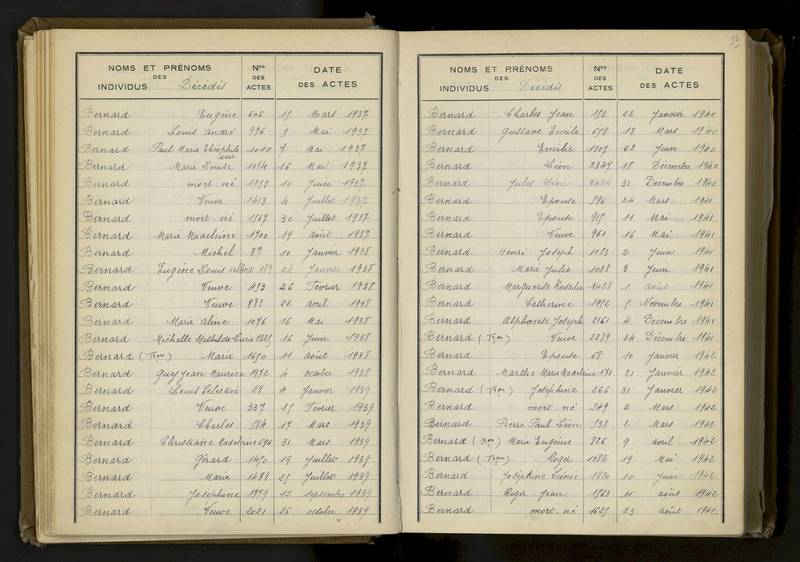 NOMS ET PRÉNOMS
DES
INDIVIDUS Décédés
Nos
DES
ACTES
DATE
DES ACTES
Bernard Eugène 606 15 Mars 1937
Bernard Louis André 996 5 Mai 1937
Bernard Paul Marie Théophile 1010 7 Mai 1937
Bernard Marie Louise 1074 16 Mai 1937
Bernard mort né 10 Juin 1937
Bernard Veuve 1413 4 Juillet 1937
Bernard mort né 1567 30 Juillet 1937
Bernard Marie Madeleine 1700 19 août 1937
Bernard Michel 87 10 Janvier 1938
Bernard Eugène Louis Albert 189 24 Janvier 1938
Bernard Veuve 453 26 Février 1938
Bernard Veuve 883 22 avril 1938
Bernard Marie Aline 1076 16 Mai 1938
Bernard Michelle Mathilde 16 Juin 1938
Bernard (Tson) Marie 1650 11 août 1938
Bernard Guy Jean Maurice 1972 4 octobre 1938
Bernard Louis Célestin 28 4 Janvier 1939
Bernard Veuve 337 15 Février 1939
Bernard Charles 584 17 Mars 1939
Bernard Christiane Madeleine 696 31 Mars 1939
Bernard Gérard 1450 19 Juillet 1939
Bernard Marie 1488 25 Juillet 1939
Bernard Josephine 1849 12 septembre 1939
Bernard Veuve 2021 26 octobre 1939
52
NOMS ET PRÉNOMS
DES
INDIVIDUS Décédés
Nos
DES
ACTES
DATE
DES ACTES
Bernard Charles Jean 153 22 Janvier 1940
Bernard Gustave Emile 658 18 Mars 1940
Bernard Emilie 1307 22 Juin 1940
Bernard Léon 2347 18 Décembre 1940
Bernard Jules Léon 2424 31 Décembre 1940
Bernard Epouse 596 24 Mars 1941
Bernard Epouse 915 11 Mai 1941
Bernard Veuve 961 16 Mai 1941
Bernard Henri Joseph 1083 2 Juin 1941
Bernard Marie Julie 1088 3 Juin 1941
Bernard Marguerite Rosalie 1428 1 août 1941
Bernard Catherine 1952 5 Novembre 1941
Bernard Alphonse Joseph 2161 4 Décembre 1941
Bernard (Tson) Veuve 2289 24 Décembre 1941
Bernard Epouse 68 10 Janvier 1942
Bernard Marthe Marie Madeleine 171 21 Janvier 1942
Bernard (Tson) Josephine 266 31 Janvier 1942
Bernard mort né 549 2 Mars 1942
Bernard Pierre Paul Léon 552 2 Mars 1942
Bernard (Tson) Marie Eugénie 826 9 avril 1942
Bernard (Tson) Roger 1082 19 Mai 1942
Bernard Joséphine 1220 10 Juin 1942
Bernard Roger Jean 1563 11 août 1942
Bernard mort né 1625 23 août 1942